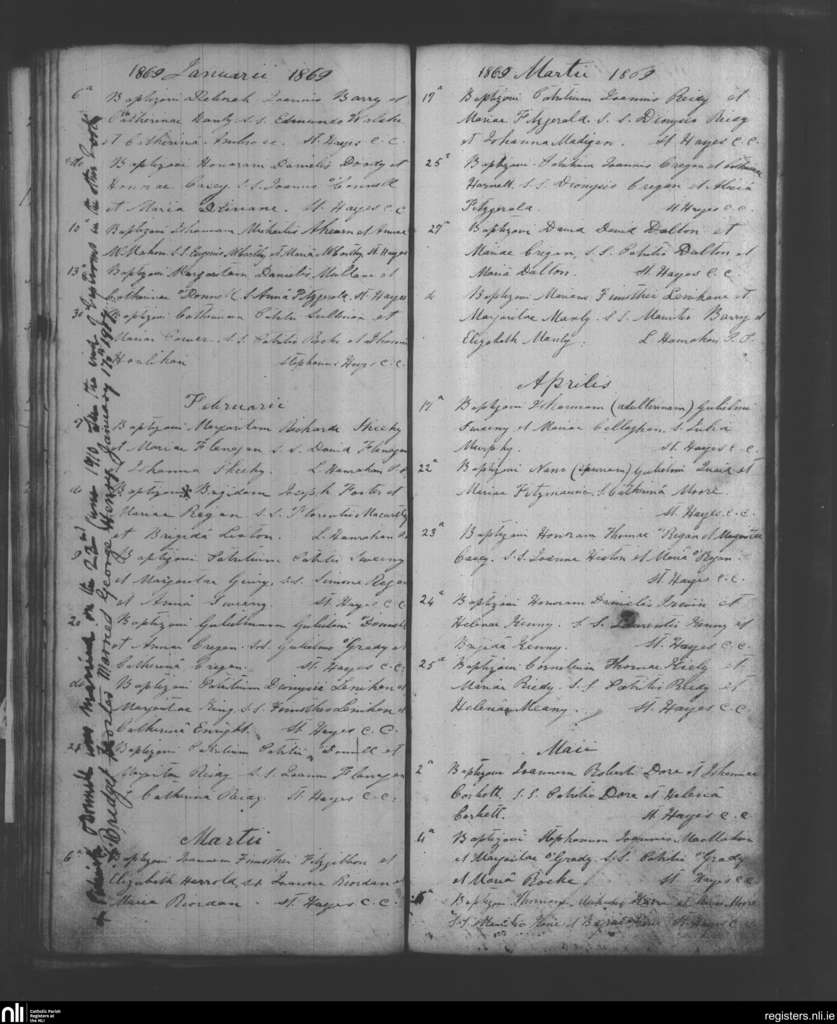 1869 Januarii 1869
6ª Baptizavi Deborah Joannis Barry et
Catherinae S.S. Edmundo
et Catherina Ambrose. St. Hayes C.C.
do Baptizavi Honoram Danielis Doody et
Honorae Casey S.S. Joannis O'Connell
et Maria St. Hayes C.C.
10ª Baptizavi Johannam Michaelis Ahearn et Annae
McMahon S.S. et Maria St. Hayes
13ª Baptizavi Margaritam Danielis Mullane et
Catherinae O'Donnell S. Anna Fitzgerald. St. Hayes
30 Baptizavi Catherinam Patritii Sullivan et
Mariae S.S. Patritio Roche et Johanna
Houlihan Stephanus Hayes C.C.
Februarii
Baptizavi Margaritam Richardi Sheehy
et Mariae Flanagan S.S. David Flanagan
et Johanna Sheehy. L. Hanrahan
do Baptizavi Brigidam Joseph Foster et
Mariae Regan S.S. Florentio Macarthy
et Brigida Liston. L. Hanrahan
Baptizavi Patritium Patritii Sweeny
et Margaritae S.S. Simone Regan
et Anna St. Hayes C.C.
Baptizavi Gulielmum Gulielmi O'Donnell
et Annae Cregan S.S. Gulielmo O'Grady et
Catherina Cregan. St. Hayes C.C.
do Baptizavi Patritium Dionysii Lenihan et
Margaritae King S.S. Timotheo Lenihan et
Catherina Enright. St. Hayes C.C.
Baptizavi Patritium Patritii O'Donnell et
Margaritae Reidy S.S. Joanne Flanagan
et Catherina Reidy. St. Hayes C.C.
Martii
6ª Baptizavi Joannem Timothei Fitzgibbon et
Elizabeth Herrold S.S. Joanne Riordan et
Maria Riordan. St. Hayes C.C.
Patrick O'Donnell was married on the 22nd (June 1910, see the end of Baptisms in the other book
Bridget Foster Married George Henry January 17th 1907
1869 Martii 1869
17ª Baptizavi Patritium Joannis Reidy et
Mariae Fitzgerald. S.S. Dionysio Reidy
et Johanna Madigan. St. Hayes C.C.
25ª Baptizavi Patritium Joannis Cregan et Catherinae
Harnett. S.S. Dionysio Cregan et Maria
Fitzgerald. St. Hayes C.C.
27ª Baptizavi David David Dalton et
Mariae Cregan, S.S. Patritio Dalton et
Maria Dalton. St. Hayes C.C.
do Baptizavi Mariam Timothei Lenihan et
Margaritae Manly. S.S. Mauritio Barry et
Elizabeth Manly. L. Hanrahan P.P.
Aprilis
17ª Baptizavi Johannam (adulterinam) Gulielmi
Sweeny et Mariae Callaghan. S. Julia
Murphy. St. Hayes C.C.
22ª Baptizavi Nano (spuriam) Gulielmi Quaid et
Mariae Fitzmaurice. S. Catherina Moore
St. Hayes C.C.
23ª Baptizavi Honoram Thomae O'Regan et Margaritae
Casey. S.S. Joanne Liston et Maria O'Regan.
St. Hayes C.C.
24ª Baptizavi Honoram Danielis Irwin et
Helenae Kenny. S.S. Laurentio Kenny et
Brigida Kenny. St. Hayes C.C.
25ª Baptizavi Cornelium Thomae Kiely et
Mariae Riedy. S.S. Patritio Riedy et
Helena Meany. St. Hayes C.C.
Maii
2ª Baptizavi Joannem Roberti Dore et Johannae
Corbett. S.S. Patritio Dore et Helena
Corbett. St. Hayes C.C.
4ª Baptizavi Stephanum Joannis MacMahon
et Margaritae O'Grady. S.S. Patritio O'Grady
et Maria Roche St. Hayes C.C.
Baptizavi et Moore
S.S. et St. Hayes C.C.
nli Catholic Parish
Registers at
the NLI
registers.nli.ie